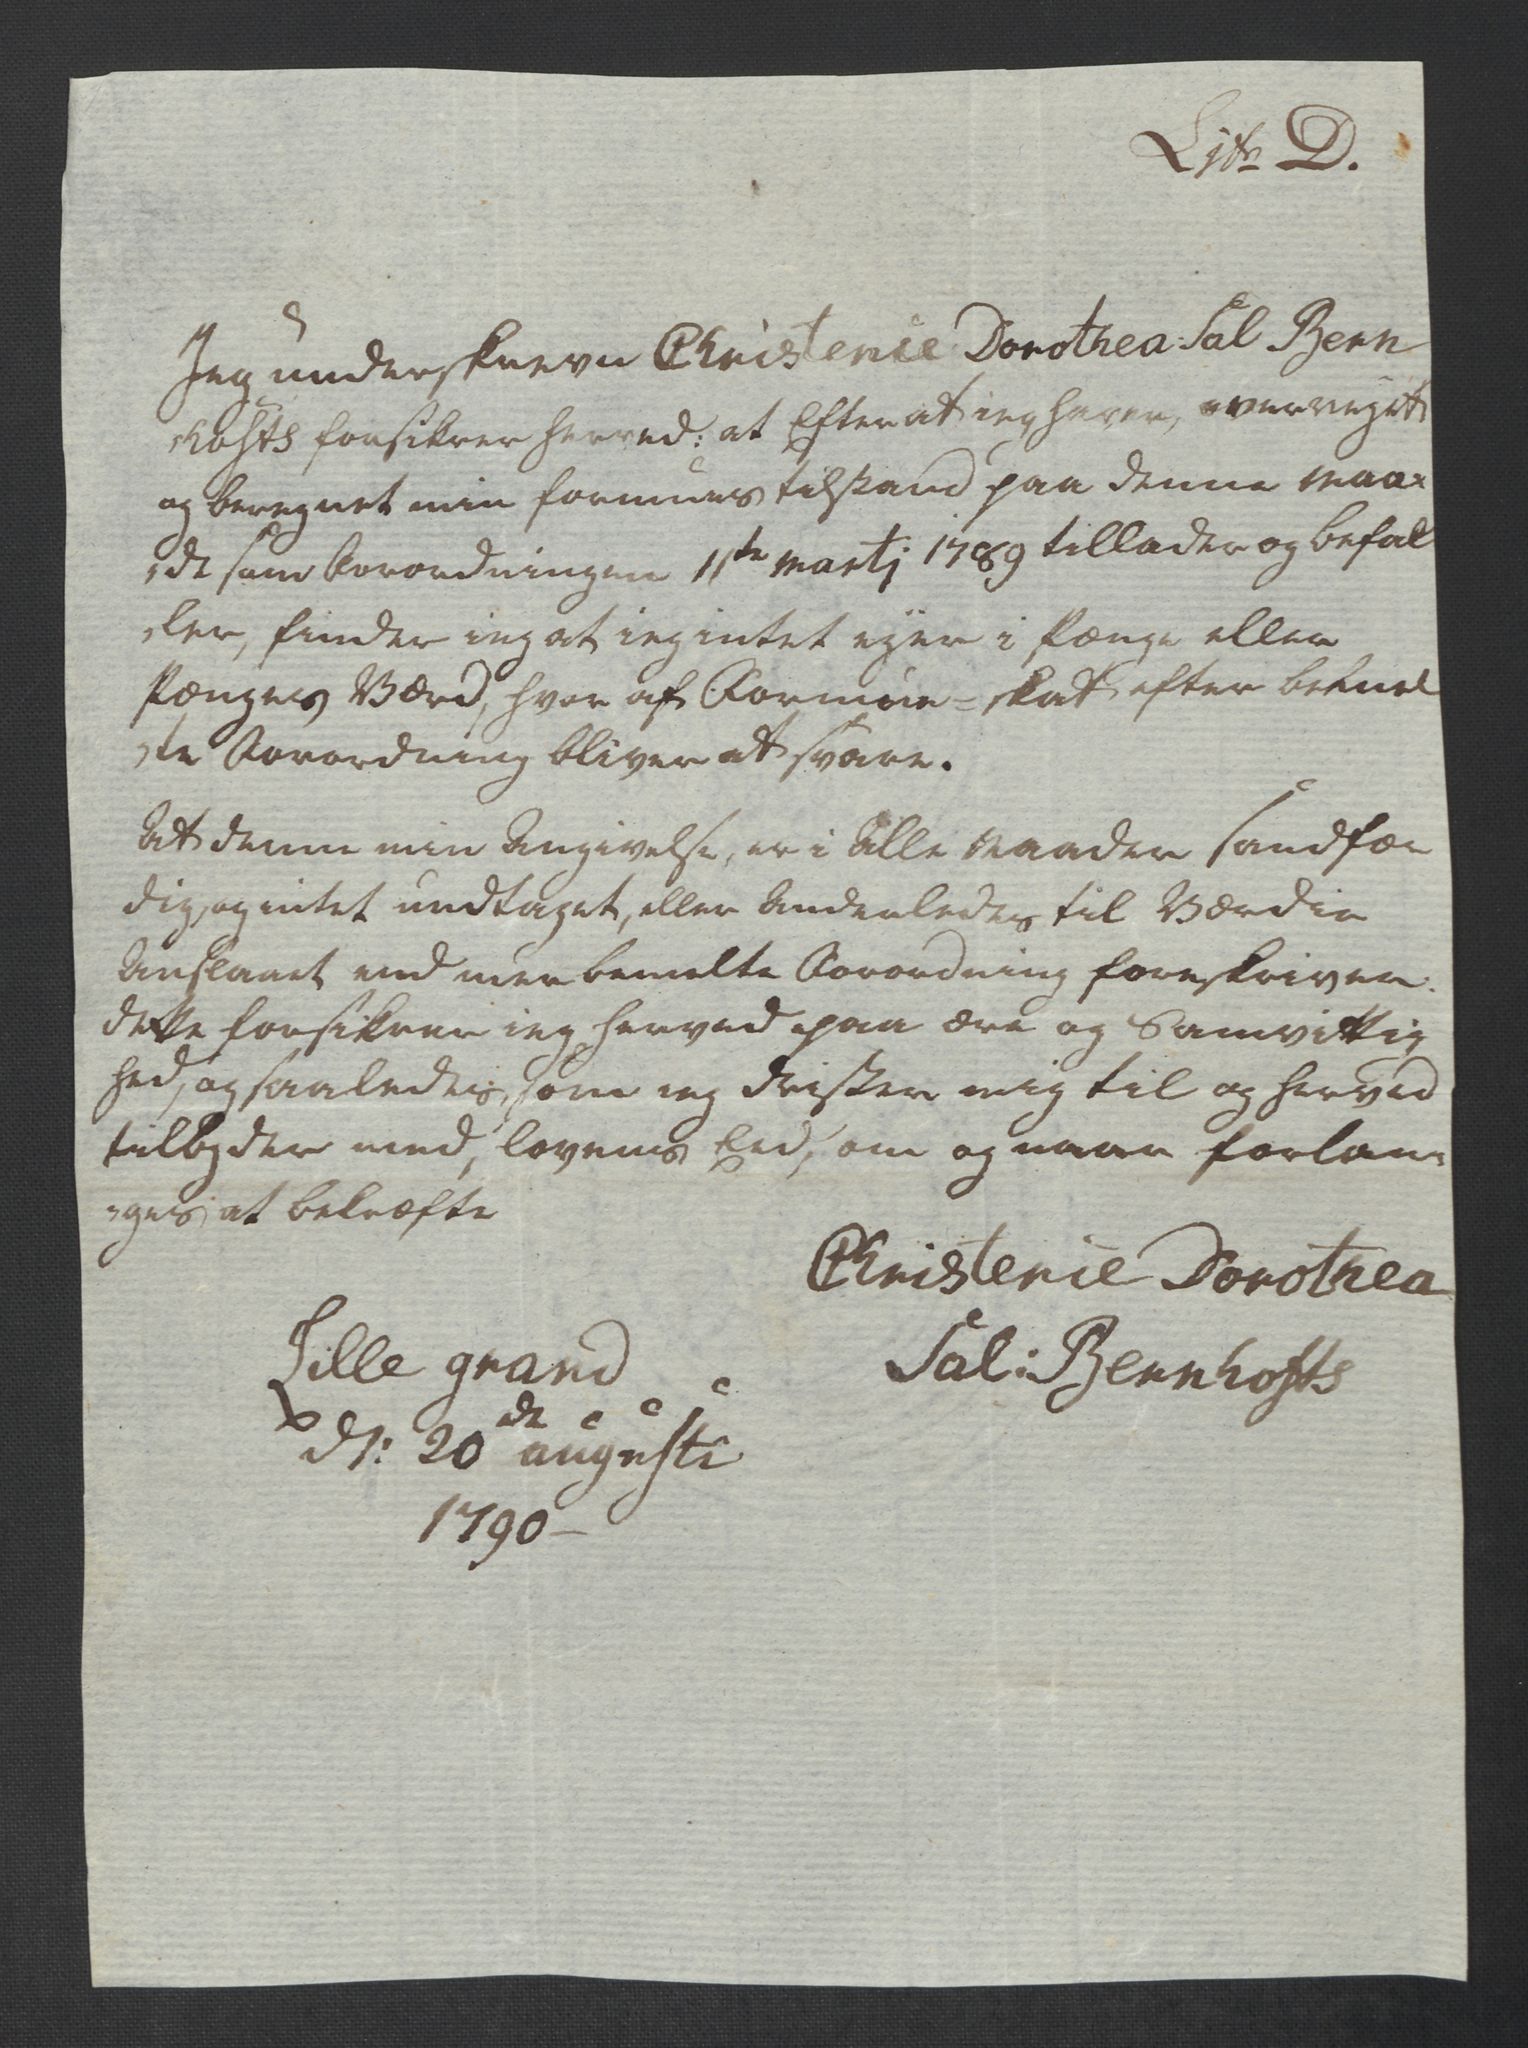 Litr D.
Jeg underskrevn Christenie Dorothea Sal Bern
hofts forsikrer herved: at Efter at ieg haver, overveyet
og beregnet min formues tilstand paa denne Maa-
de som Forordningen 11te Martj 1789 tillader og befal
ler, finder ieg at ieg intet eyer i Penge eller
Penges Værd, hvor af Formue-skat efter bemel
te Forordning bliver at svare.
At denne min Angivelse, er i Alle Maader sandfær
dig, og intet undtaget, eller Anderledes til Værdie
Anslaaet end merbemelte Forordning foreskriver.
dette forsikrer ieg herved paa ære og Samvittig
hed, og saaledes, som ieg drister mig til og herved
tilbyder med, lovens Eed, om og naar forlan-
ges at bekræfte
Christenie Dorothea
Sal: Bernhofts
Lille grand
d: 20de augusti
1790